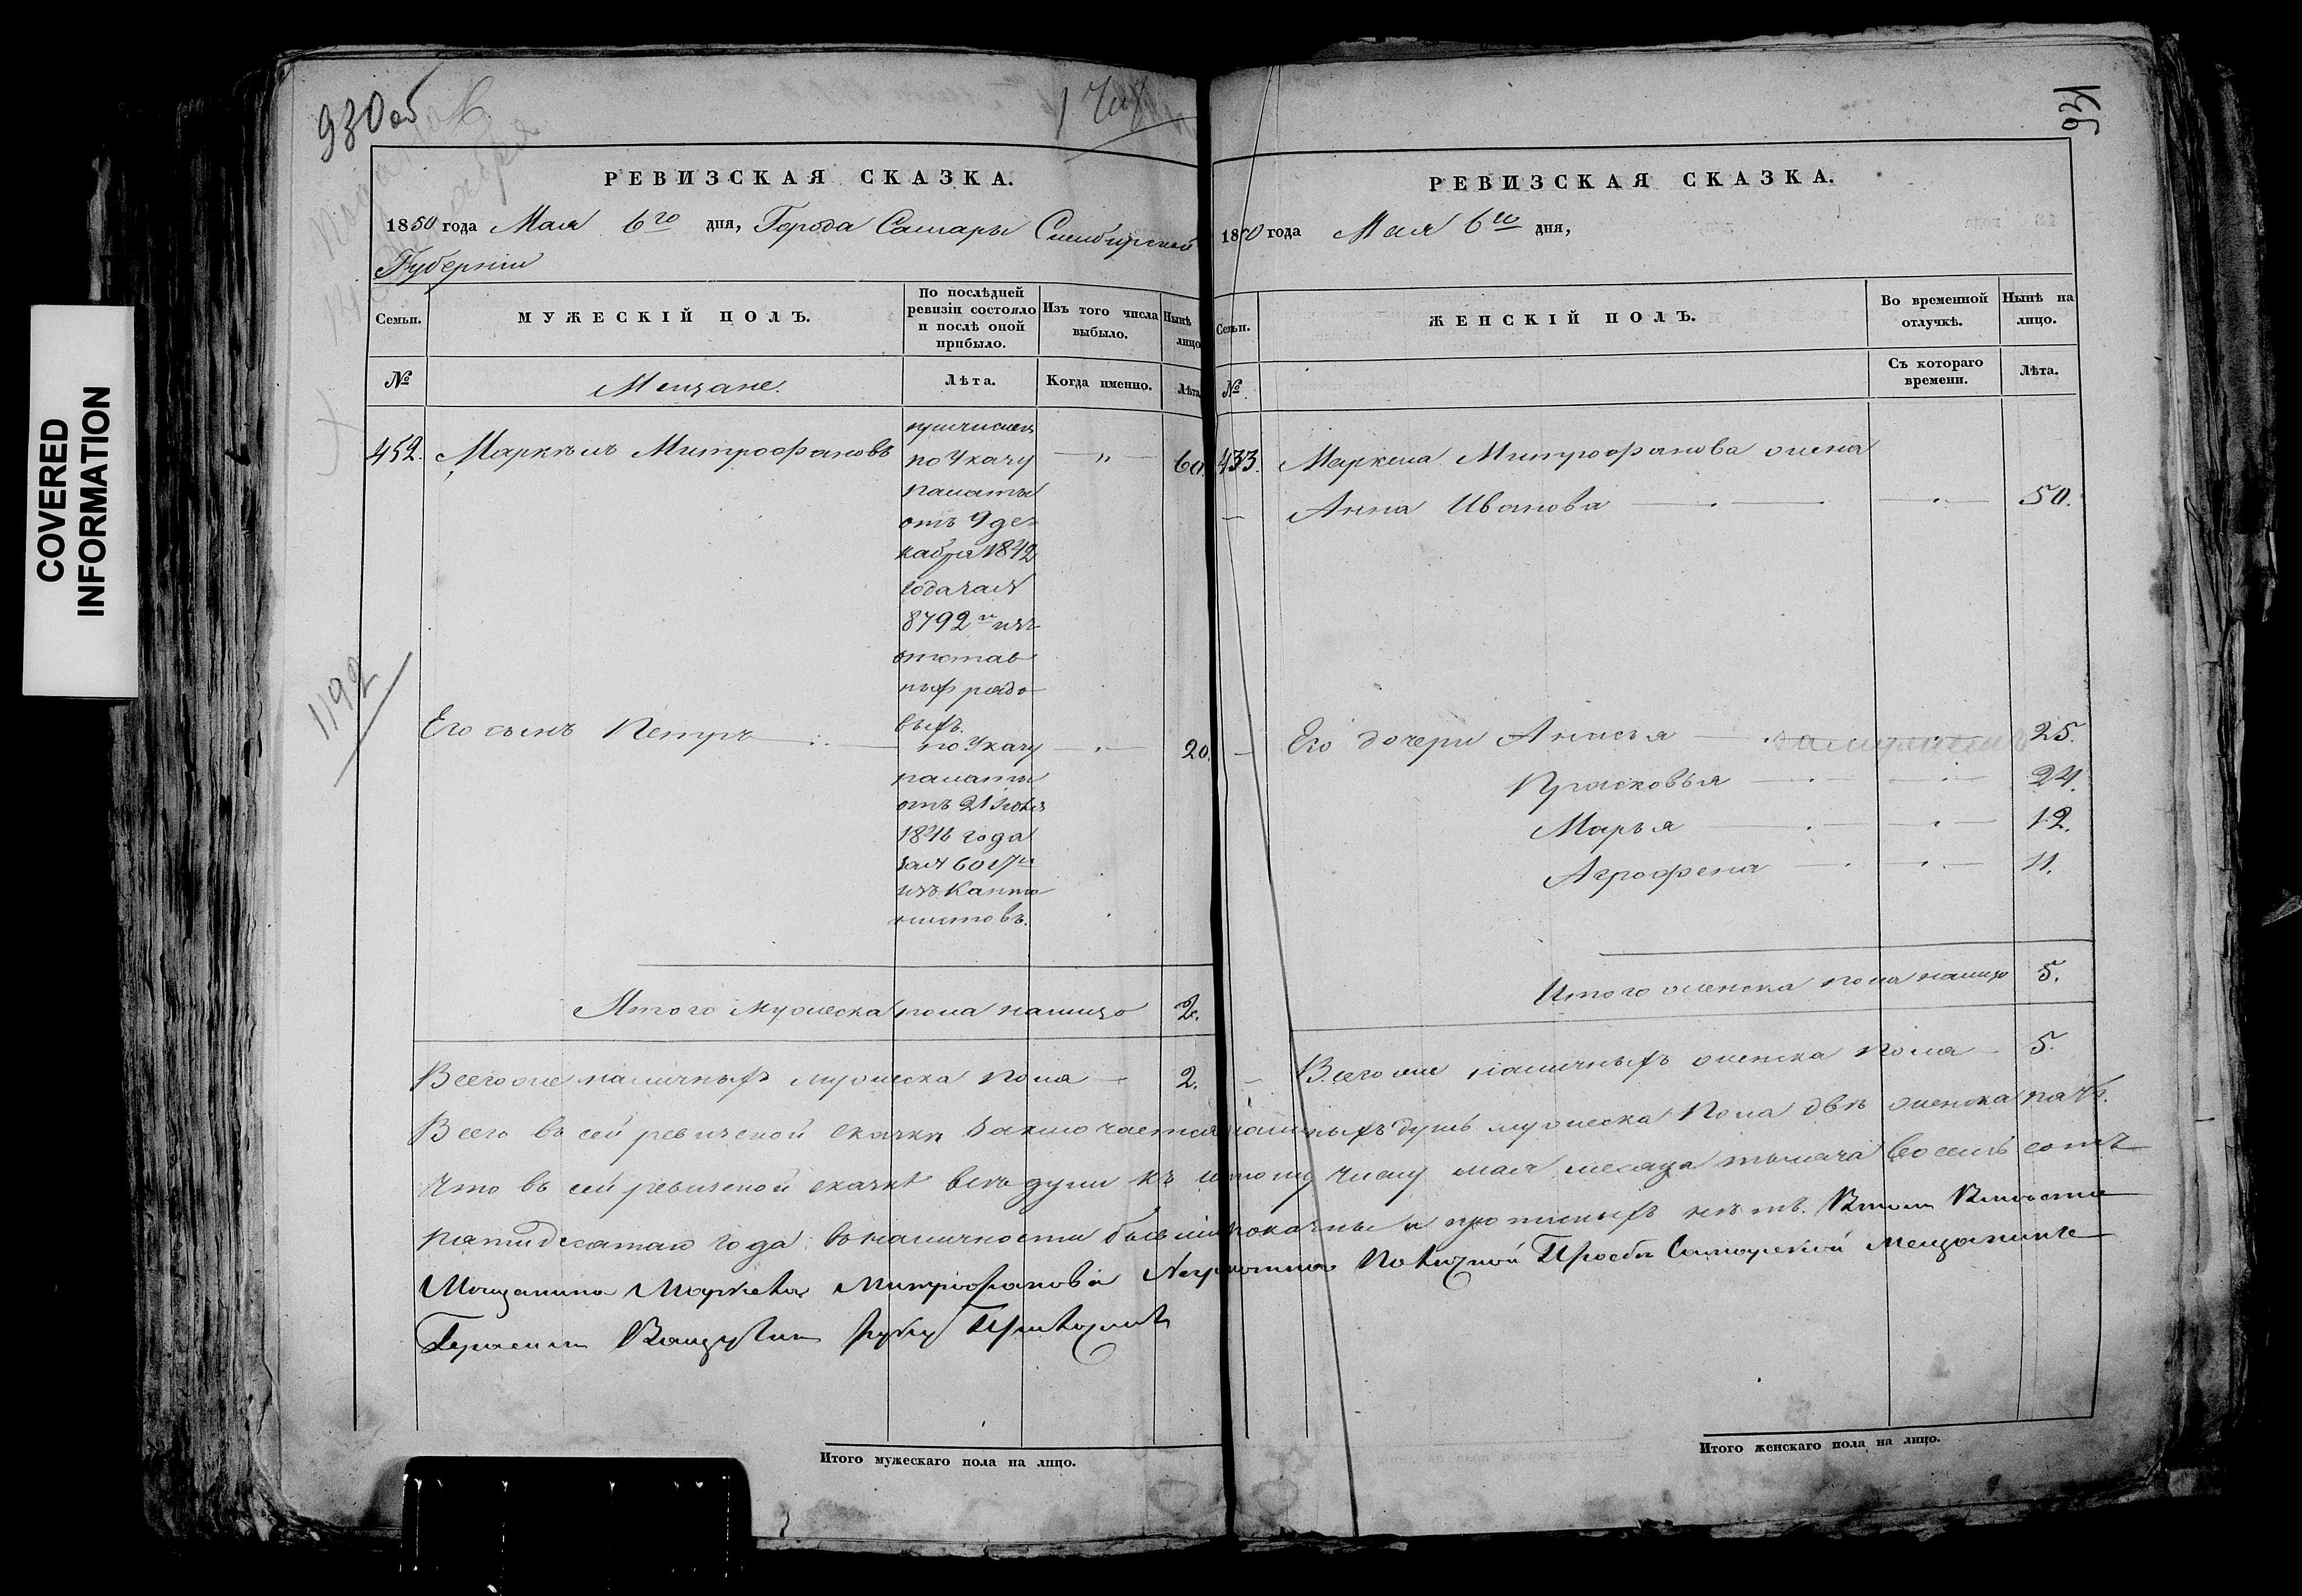 COVERED
INFORMATION
930 об
РЕВИЗСКАЯ СКАЗКА.
1850 года Мая 6го дня, Города Самары Симбирской
Губерніи
Семьи.
МУЖЕСКІЙ ПОЛЪ.
По послѣдней
ревизіи состояло
и послѣ оной
прибыло.
Изъ того числа
выбыло.
Нынѣ
лицо
№
Мещане.
Лѣта.
Когда именно.
Лѣта
452. Маркелъ Митрофановъ
причисленъ
по Указу
палаты
отъ 9 де-
кабря 1842
года за №
8792м изъ
отстав
ныхъ рядо
выхъ.
" 60.
Его сынъ Петръ
по Указу
палаты
отъ 21
1846 года
за №
изъКанто
нистовъ.
20.
1192
Итого мужеска пола налицо 2.
Всего же наличныхъ мужеска пола 2.
931
РЕВИЗСКАЯ СКАЗКА.
1850 года Мая 6го дня,
Семьи.
ЖЕНСКІЙ ПОЛЪ.
Во временной
отлучкѣ.
Нынѣ на
лицо.
№
Съ котораго
времени.
Лѣта.
433. Маркела Митрофанова жена
Анна Иванова 50.
Его дочери Анисья замужемъ 25.
Прасковья 24.
Марья 12.
Аграфена 11.
Итого женска пола налицо 5.
Всего же наличныхъ женска пола 5.
Всего въ сей ревизской сказки заключается наличныхъ душъ мужеска пола двѣ женска пять.
Что въ сей ревизской сказкѣ всѣ души къ шестому числу мая месяца тысяча восемь сотъ
пятидесятаго года въ наличности бывшіи показаны и прописныхъ нѣтъ.
Мещанина Маркела Митрофанова Самарской мещанинъ
Герасимъ руку приложилъ
Итого мужескаго пола на лицо.
Итого женскаго пола на лицо.